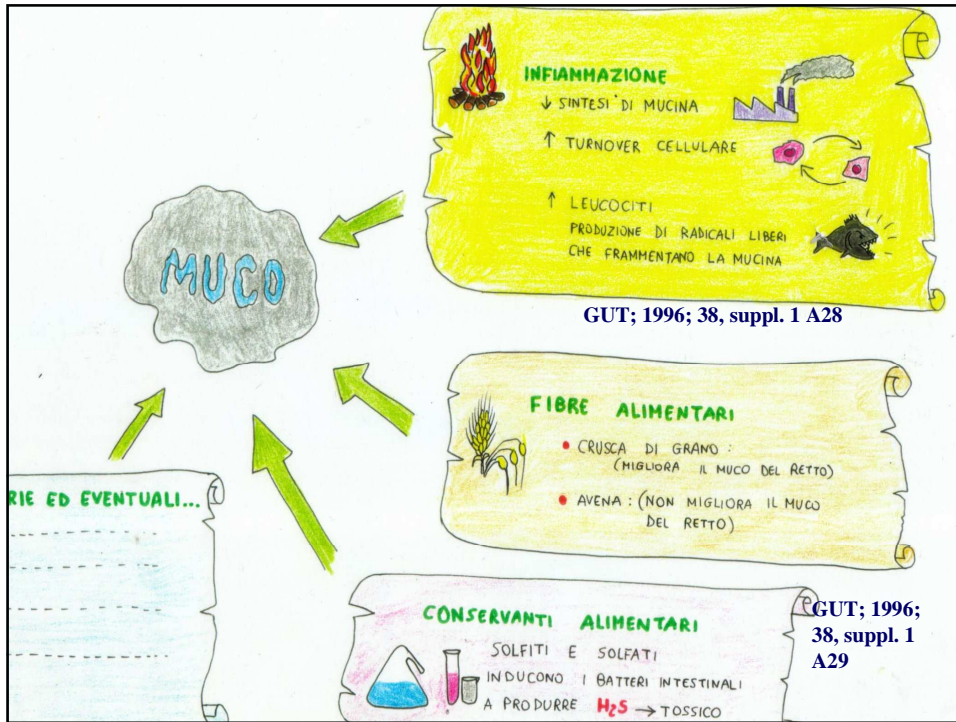 INFIAMMAZIONE
↓ SINTESI DI MUCINA
↑ TURNOVER CELLULARE
↑ LEUCOCITI
PRODUZIONE DI RADICALI LIBERI
CHE FRAMMENTANO LA MUCINA
GUT; 1996; 38, suppl. 1 A28
MUCO
FIBRE ALIMENTARI
• CRUSCA DI GRANO :
(MIGLIORA IL MUCO DEL RETTO)
• AVENA : (NON MIGLIORA IL MUCO
DEL RETTO)
RIE ED EVENTUALI...
CONSERVANTI ALIMENTARI
SOLFITI E SOLFATI
INDUCONO I BATTERI INTESTINALI
A PRODURRE H2S → TOSSICO
GUT; 1996;
38, suppl. 1
A29